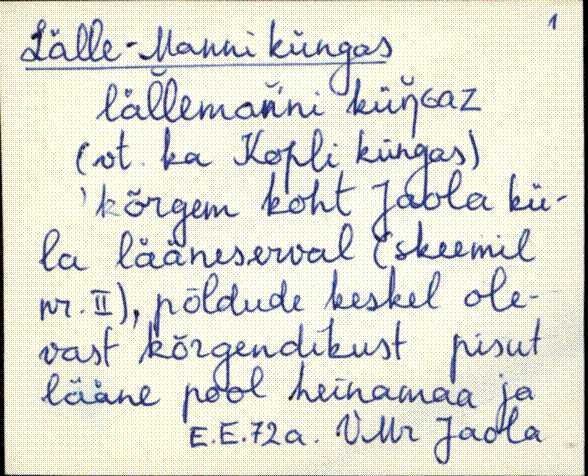 1
Lälle-Manni küngas
lällemǎn̆ni küŋ̆ɢaz
(vt. ka Kopli küngas)
'kõrgem koht Jaola kü-
la lääneserval (skeemil
nr. II), põldude keskel ole-
vast kõrgendikust pisut
lääne pool heinamaa ja
E.E.72a. VMr Jaola